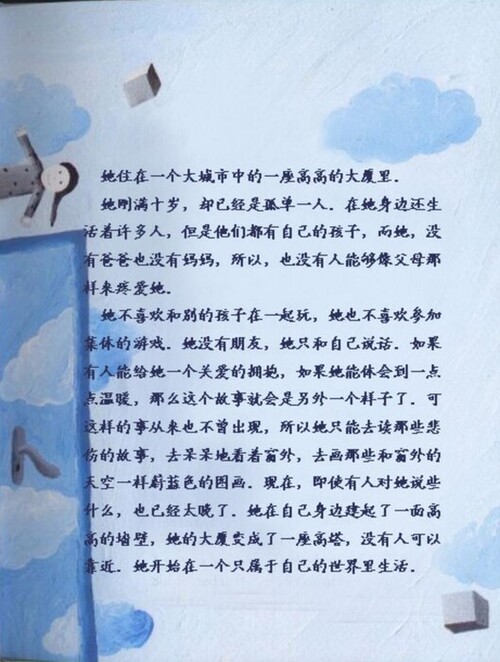 她住在一个大城市中的一座高高的大厦里.
她刚满十岁, 却已经是孤单一人. 在她身边还生
活着许多人, 但是他们都有自己的孩子, 而她, 没
有爸爸也没有妈妈, 所以, 也没有人能够像父母那
样来疼爱她.
她不喜欢和别的孩子在一起玩, 她也不喜欢参加
集体的游戏. 她没有朋友, 她只和自己说话. 如果
有人能给她一个关爱的拥抱, 如果她能体会到一点
点温暖, 那么这个故事就会是另外一个样子了. 可
这样的事从来也不曾出现, 所以她只能去读那些悲
伤的故事, 去呆呆地看着窗外, 去画那些和窗外的
天空一样蔚蓝色的图画. 现在, 即使有人对她说些
什么, 也已经太晚了. 她在自己身边建起了一面高
高的墙壁, 她的大厦变成了一座高塔, 没有人可以
靠近. 她开始在一个只属于自己的世界里生活.